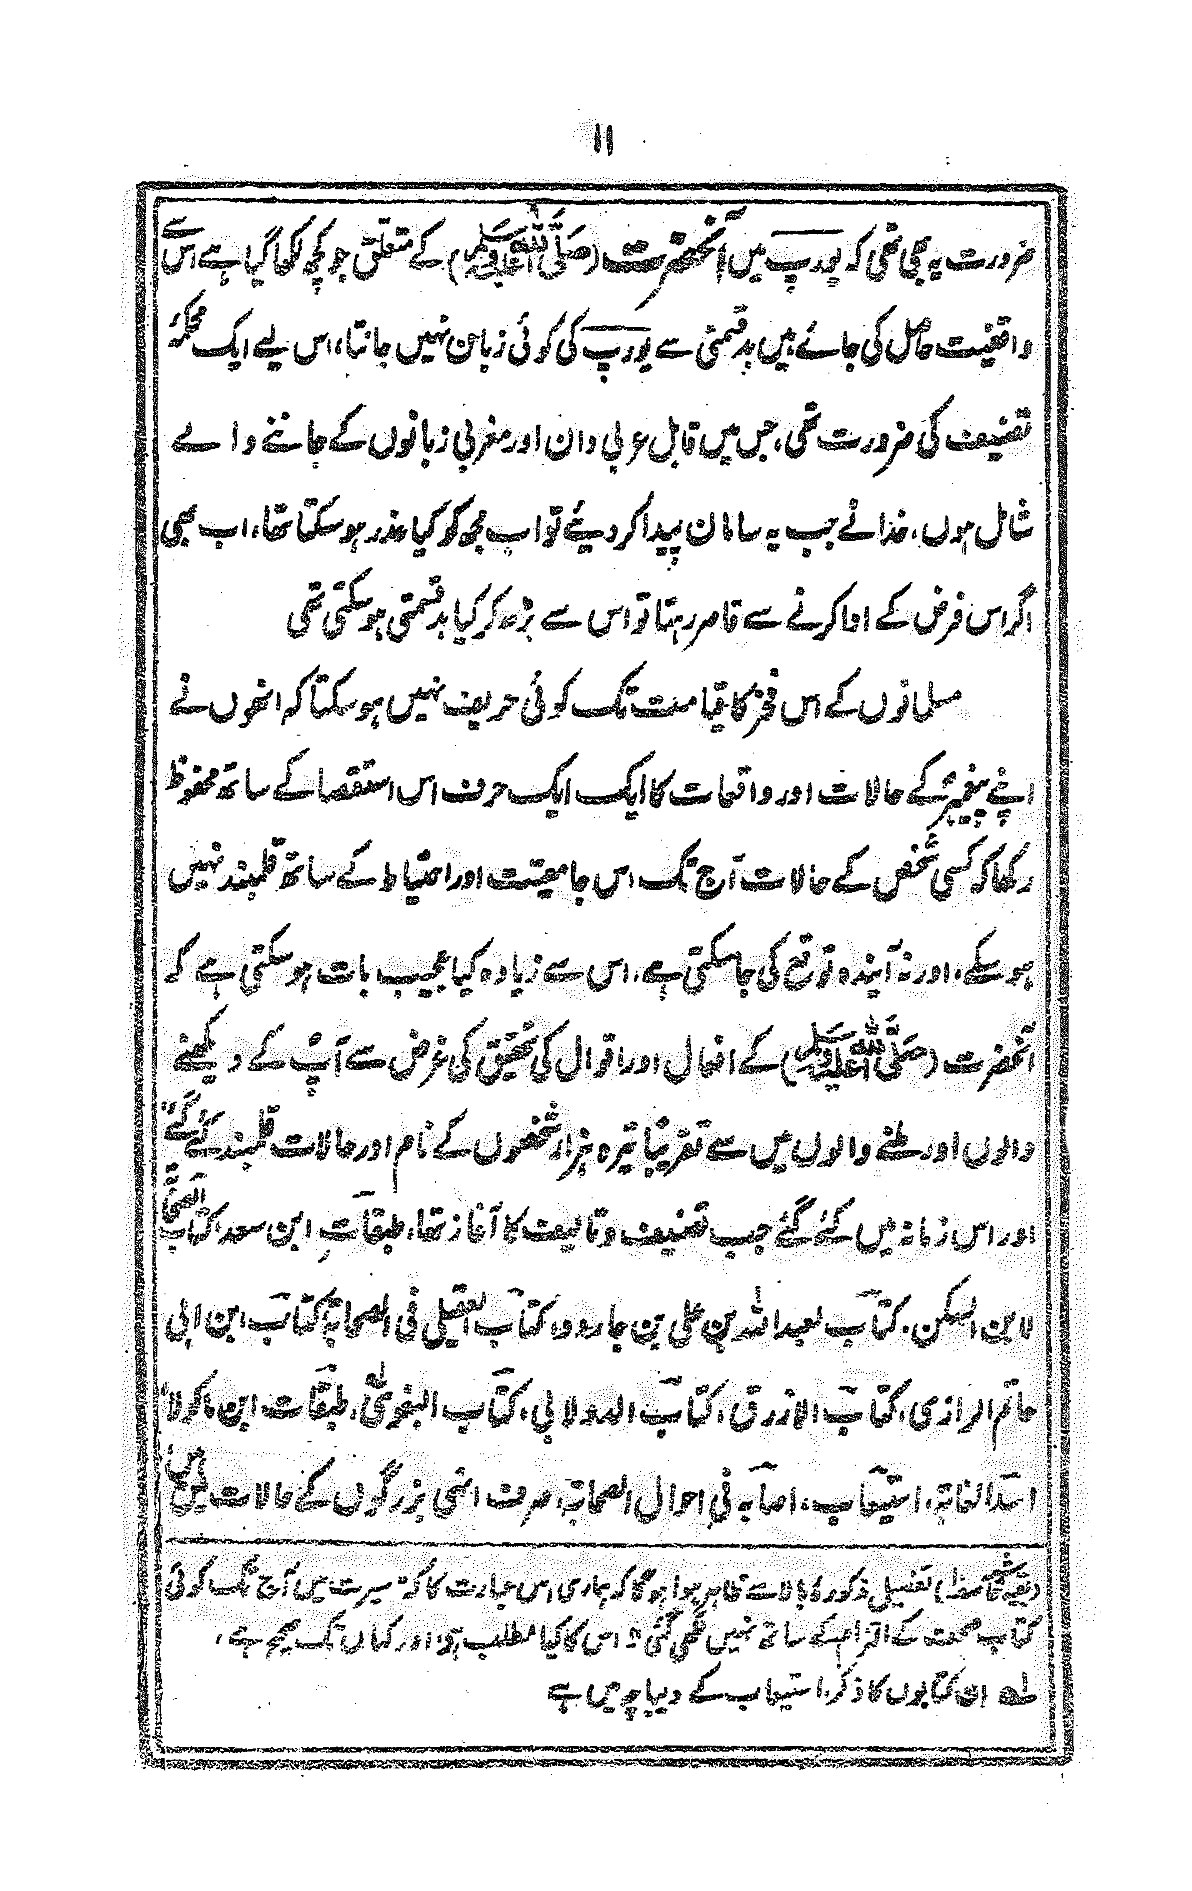 ۱۱
ضرورت یہ بھی تھی کہ یورپ میں آنحضرت (صَلَّی اللہ عَلَیہِ وسَلَّم) کے متعلق جو کچھ لکھا گیا ہے اس سے
واقفیت حاصل کی جائے ہیں بدقسمتی سے یورپ کی کوئی زبان نہیں جانتا، اس لیے ایک محکمۂ
تصنیف کی ضرورت تھی، جس میں قابل عربی دان اور مغربی زبانوں کے جاننے والے
شامل ہوں، خدا نے جب یہ سامان پیدا کر دیئے تو اب مجھ کو کیا عذر ہو سکتا تھا، اب بھی
اگر اس فرض کے ادا کرنے سے قاصر رہتا تو اس سے بڑھ کر کیا بدقسمتی ہو سکتی تھی
مسلمانوں کے اس فخر کا قیامت تک کوئی حریف نہیں ہو سکتا کہ انھوں نے
اپنے پیغمبرؐ کے حالات اور واقعات کا ایک ایک حرف اس استقصا کے ساتھ محفوظ
رکھا کہ کسی شخص کے حالات آج تک اس جامعیت اور احتیاط کے ساتھ قلمبند نہیں
ہو سکے، اور نہ آیندہ توقع کی جا سکتی ہے، اس سے زیادہ کیا عجیب بات ہو سکتی ہے کہ
آنحضرت (صَلَّی اللہ عَلَیہِ وسَلَّم) کے افعال اور اقوال کی تحقیق کی غرض سے آپؐ کے دیکھنے
والوں اور ملنے والوں میں سے تقریباً تیرہ ہزار شخصوں کے نام اور حالات قلمبند کئے گئے،
اور اس زمانہ میں کئے گئے جب تصنیف و تالیف کا آغاز تھا، طبقات ابن سعد، کتاب الصحابۃ
لابن السکن، کتاب لعبد اللہ بن علی بن جارود، کتاب العقیلی فی الصحابۃ، کتاب ابن ابی
حاتم الرازی، کتاب الازرق، کتاب الدولابی، کتاب البغوی، طبقات ابن ماکولا،
اسد الغابۃ، استیعاب، اصابہ فی احوال الصحابۃ، صرف انھی بزرگوں کے حالات میں ہیں،
(بقیہ حاشیہ) تفصیل مذکورۂ بالا سے ظاہر ہوا ہو گا کہ ہماری اس عبارت کا کہ "سیرت میں آج تک کوئی
کتاب صحت کے التزام کے ساتھ نہیں لکھی گئی" اس کا کیا مطلب ہے اور کہاں تک صحیح ہے،
لے ان کتابوں کا ذکر استیعاب کے دیباچہ میں ہے